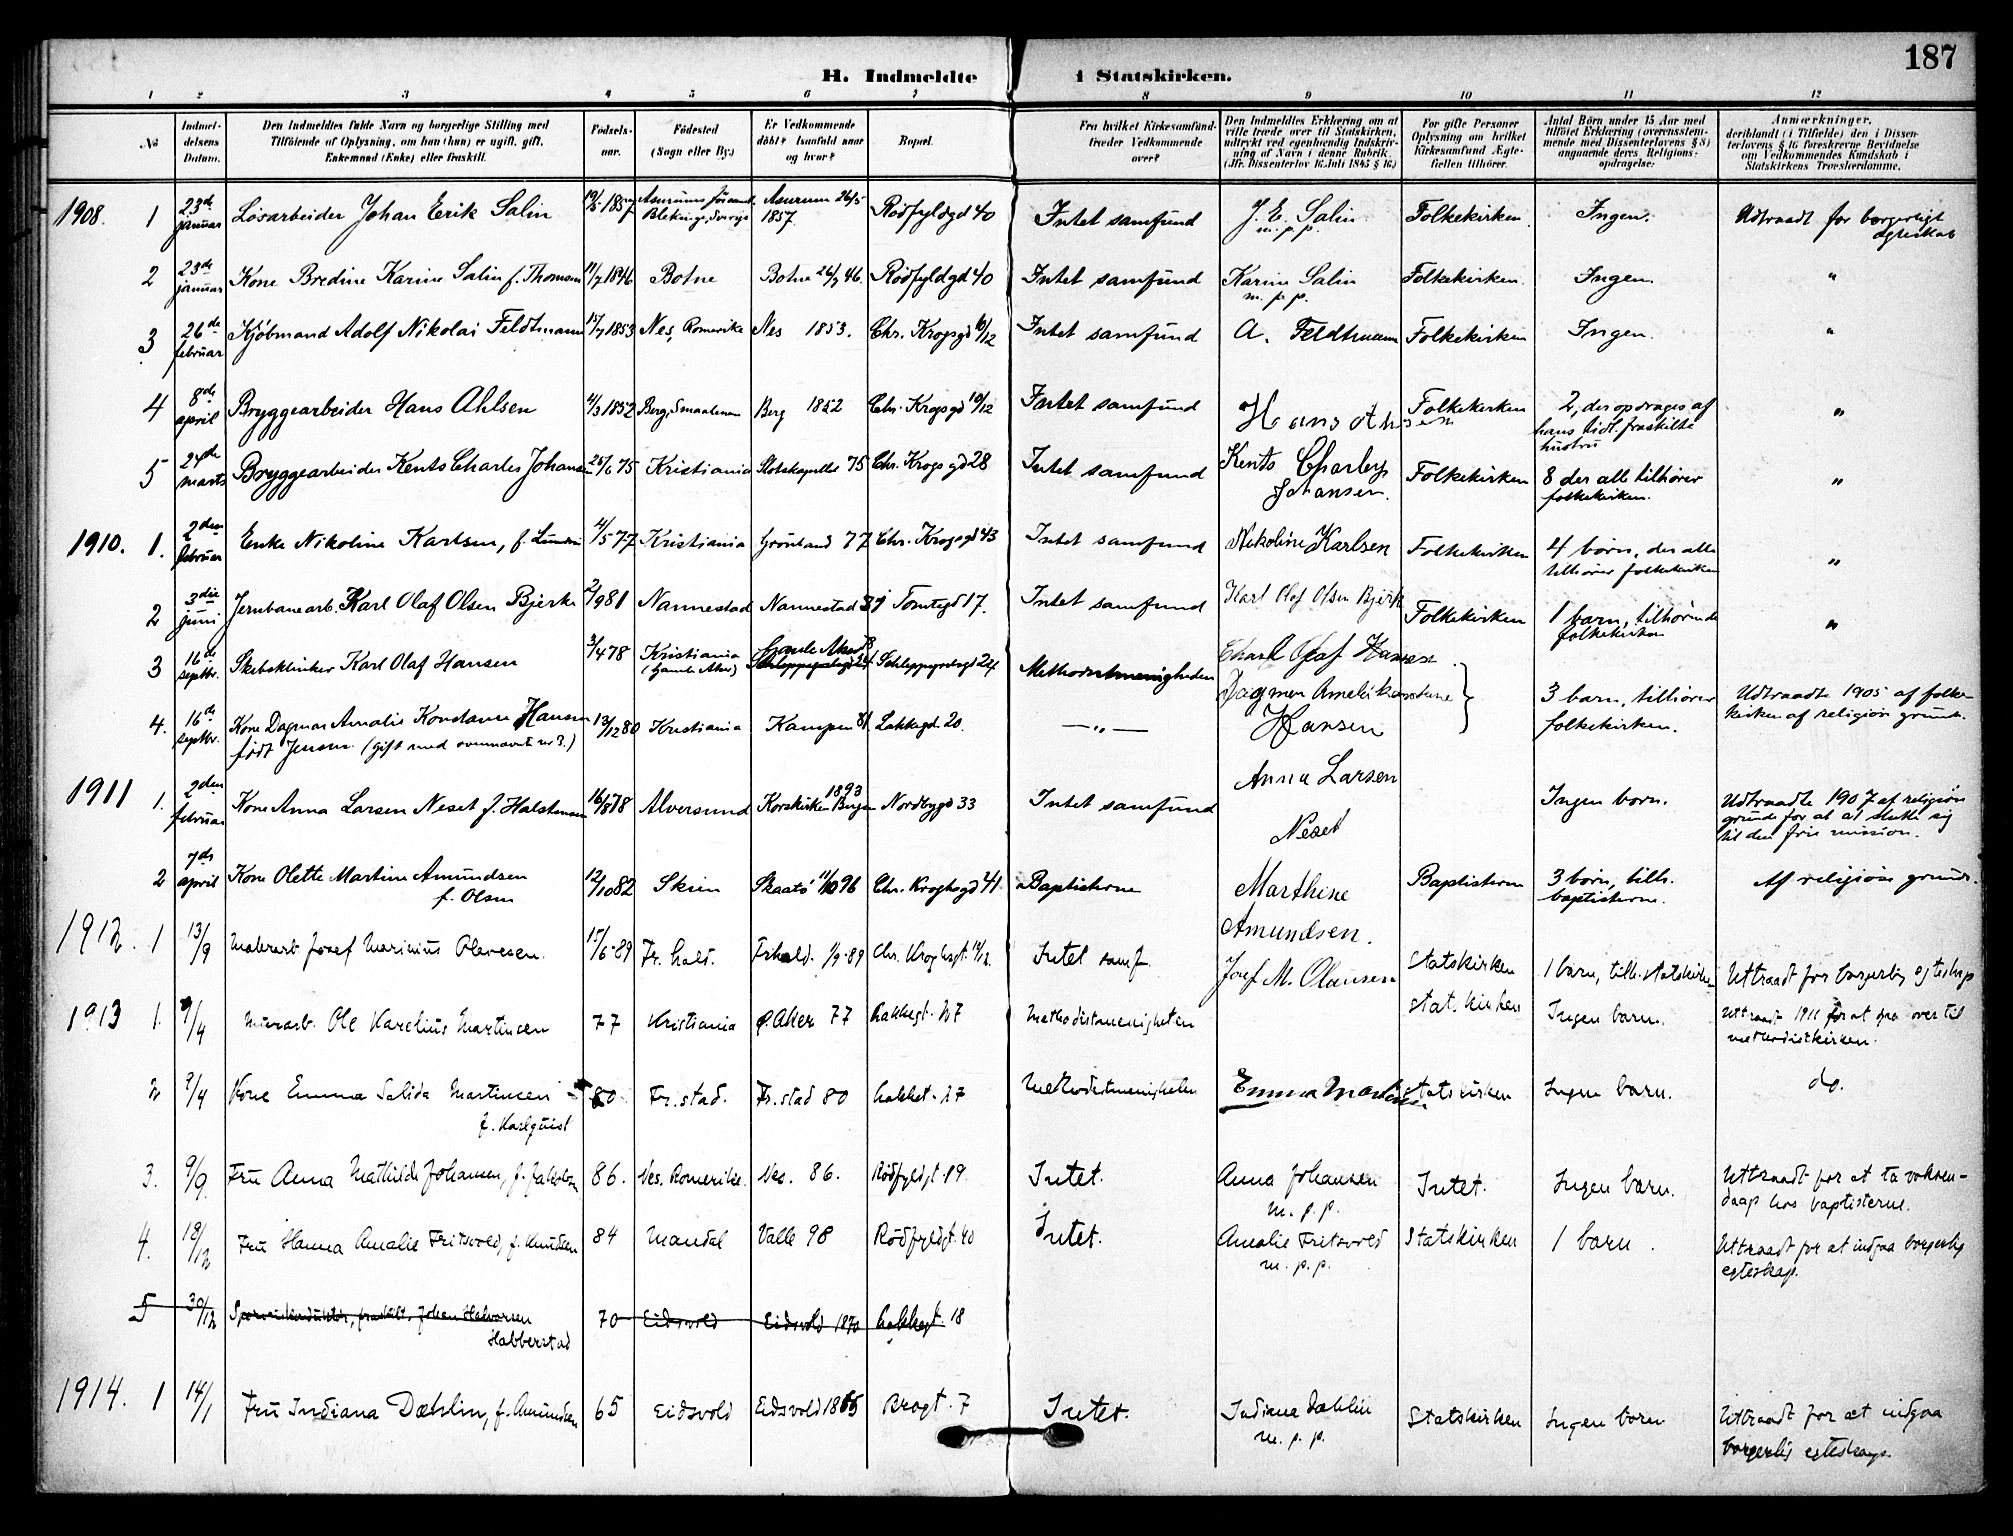 187
H. Indmeldte i Statskirken.
1 2 3 4 5 6 7 8 9 10 11 12
No
Indmeldelsens Datum.
Den Indmeldtes fulde Navn og borgerlige Stilling med
Tilföiende af Oplysning, om han (hun) er ugift, gift,
Enkemand (Enke) eller fraskilt.
Fødselsaar.
Födested
(Sogn eller By.)
Er Vedkommende
döbt? Isaafald naar
og hvor?
Bopæl.
Fra hvilket Kirkesamfund
træder Vedkommende
over?
Den Indmeldtes Erklæring om at
ville træde over til Statskirken,
udtrykt ved egenhændig Indskrivning af Navn i denne Rubrik.
(Jfr. Dissenterlov 16. Juli 1845 § 16.)
For gifte Personer
Oplysning om hvilket
Kirkesamfund Ægtefællen tilhører.
Antal Börn under 15 Aar med
tilföiet Erklæring (overensstemmende med Dissenterlovens § 8)
angaaende deres Religionsopdragelse.
Anmærkninger,
deriblandt (i Tilfælde) den i Dissenterlovens § 16 foreskrevne Bevidnelse
om Vedkommendes Kundskab i
Statskirkens Troeslærdomme.
1908. 1 23de januar Løsarbeider Johan Erik Salin 1857 Asarums Blekinge, Sverige Asarum 26/5 1857. Rødfyldgd 40 Intet samfund J. E. Salin m.p.p. Folkekirken. Ingen. Udtraadt for borgerligt ægteskab
2 23de januar Kone Bredine Karine Salin f. Thomsen 11/7 1846 Botne Botne 26/7 46. Rødfyldgd 40 Intet samfund Karine Salin m.p.p. Folkekirken. Ingen "
3 26de februar Kjøbmand Adolf Nikolai Feldtmann 15/7 1853 Nes, Romerike Nes 1853. Chr. Krogsgd 10/12 Intet samfund A. Feldtmann Folkekirken Ingen. "
4 8de april Bryggearbeider Hans Ahlsen 4/3 1852 Berg, Smaalenene Berg 1852 Chr. Krogsgd 10/12 Intet samfund Hans Ahlsen Folkekirken 2, der opdrages af hans tidl. fraskilte hustru "
5 24de marts Bryggearbeider Kents Charles Johansen 25/6 75 Kristiania Slotskapellet 75 Chr. Krogs gd 28 Intet samfund Kents Charles Johansen. Folkekirken 8 der alle tilhører folkekirken. "
1910. 1. 2den februar Enke Nikoline Karlsen, f. 4/5 77 Kristiania Grønland 77 Chr. Krogsgd 43 Intet samfund Nikoline Karlsen Folkekirken 4 børn, der alle tilhører folkekirken "
2 3die juni Jernbanearb. Karl Olaf Olsen Bjerke 2/9 81 Nannestad Nannestad Tomtegd 17. Intet samfund Karl Olaf Olsen Bjerke Folkekirken 1 barn, tilhørende folkekirken "
3 16de septbr. Karl Olaf Hansen 3/4 78 Kristiania (Gamle Aker) Gamle Aker Schleppegrelsgd 24 Methodistmenigheden Karl Olaf Hansen
4. 16de septbr. Kone Dagmar Amalie Konstanse Hansen født Jensen (gift med ovennævnte no 3.) 13/12 80 Kristiania Kampen 81 Lakkegd 20. — " — Dagmar Amalie Konstanse Hansen 3 barn, tilhører folkekirken. Udtraadte 1905 af folkekirken af religiøse grunde.
1911 1. 2den februar Kone Anna Larsen Neset f. Halstensen 16/8 78 Alversund Korskirken Bergen 1893 Nordbygd 33 Intet samfund Anna Larsen Neset Ingen børn. Udtraadte 1907 af religiøse grunde for at slutte sig til den frie mission.
2 7de april Kone Olette Martine Amundsen f. Olsen 12/10 82 Skien Skaatø 11/10 96 Chr. Kroghsgd 41 Baptisterne Marthine Amundsen. Baptisterne 3 børn, tilh. baptisterne. Af religiøse grunde.
1912. 1 13/9 Malerarb. Josef Marinius Olavesen. 15/6-89 Fr.hald. Fr.hald. 1/9-89 Chr. Kroghsgt 10/12. Intet samf. Josef M. Olausen Statskirken 1 barn, tilh. statskirken Uttraadt for borgerlig egteskap
1913 1. 9/4 Murarb. Ole Karelius Martinsen 77 Kristiania Ø. Aker 77 Lakkegt. 27 Methodistmenigheten Stat.kirken Ingen barn. Uttraadt 1911 for at gaa over til methodistkirken.
2 9/4 Kone Emma Salida Martinsen f. Karlquist 80 Fr.stad. Fr.stad 80 Lakkegt. 27 Methodistmenigheten Emma Martinsen Statskirken Ingen barn. do.
3. 9/9 Fru Anna Mathilde Johansen, f. Jakobsen 86. Nes. Romerike. Nes. 86. Rødfyldgt. 19. Intet. Anna Johansen m.p.p. Intet. Ingen barn. Uttraadt for at ta voksendaap hos baptisterne.
4. 18/12 Fru Hanna Amalie Fritsvold, f. Knudsen 84 Mandal Valle 98 Rødfyldgt. 40 Intet. Amalie Fritsvold m.p.p. Statskirken 1 barn. Uttraadt for at indgaa borgerlig egteskap.
5 30/12 Sporveiskonduktør, fraskilt, Johan Halvorsen Habberstad 70 Eidsvold Eidsvold 1870 Lakkegt. 18
1914. 1 14/1 Fru Indiana Dæhlin, f. Amundsen 65 Eidsvold Eidsvold 1865 Brogt. 7 Intet. Indiana Dæhlin m.p.p. Statskirken Ingen barn Uttraadt for at indgaa borgerlig egteskap.